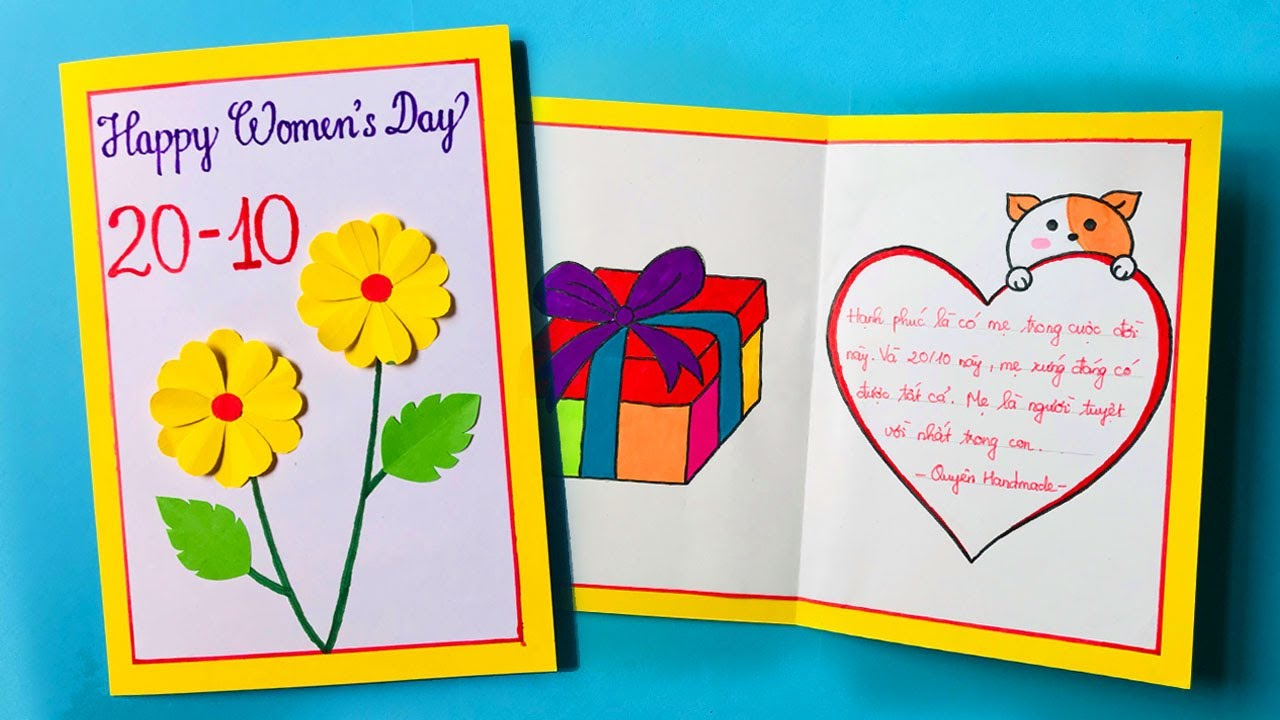 Happy Women's Day
20-10
Hạnh phúc là có mẹ trong cuộc đời
này. Và 20/10 này, mẹ xứng đáng có
được tất cả. Mẹ là người tuyệt
vời nhất trong con.
- Quyên Handmade -